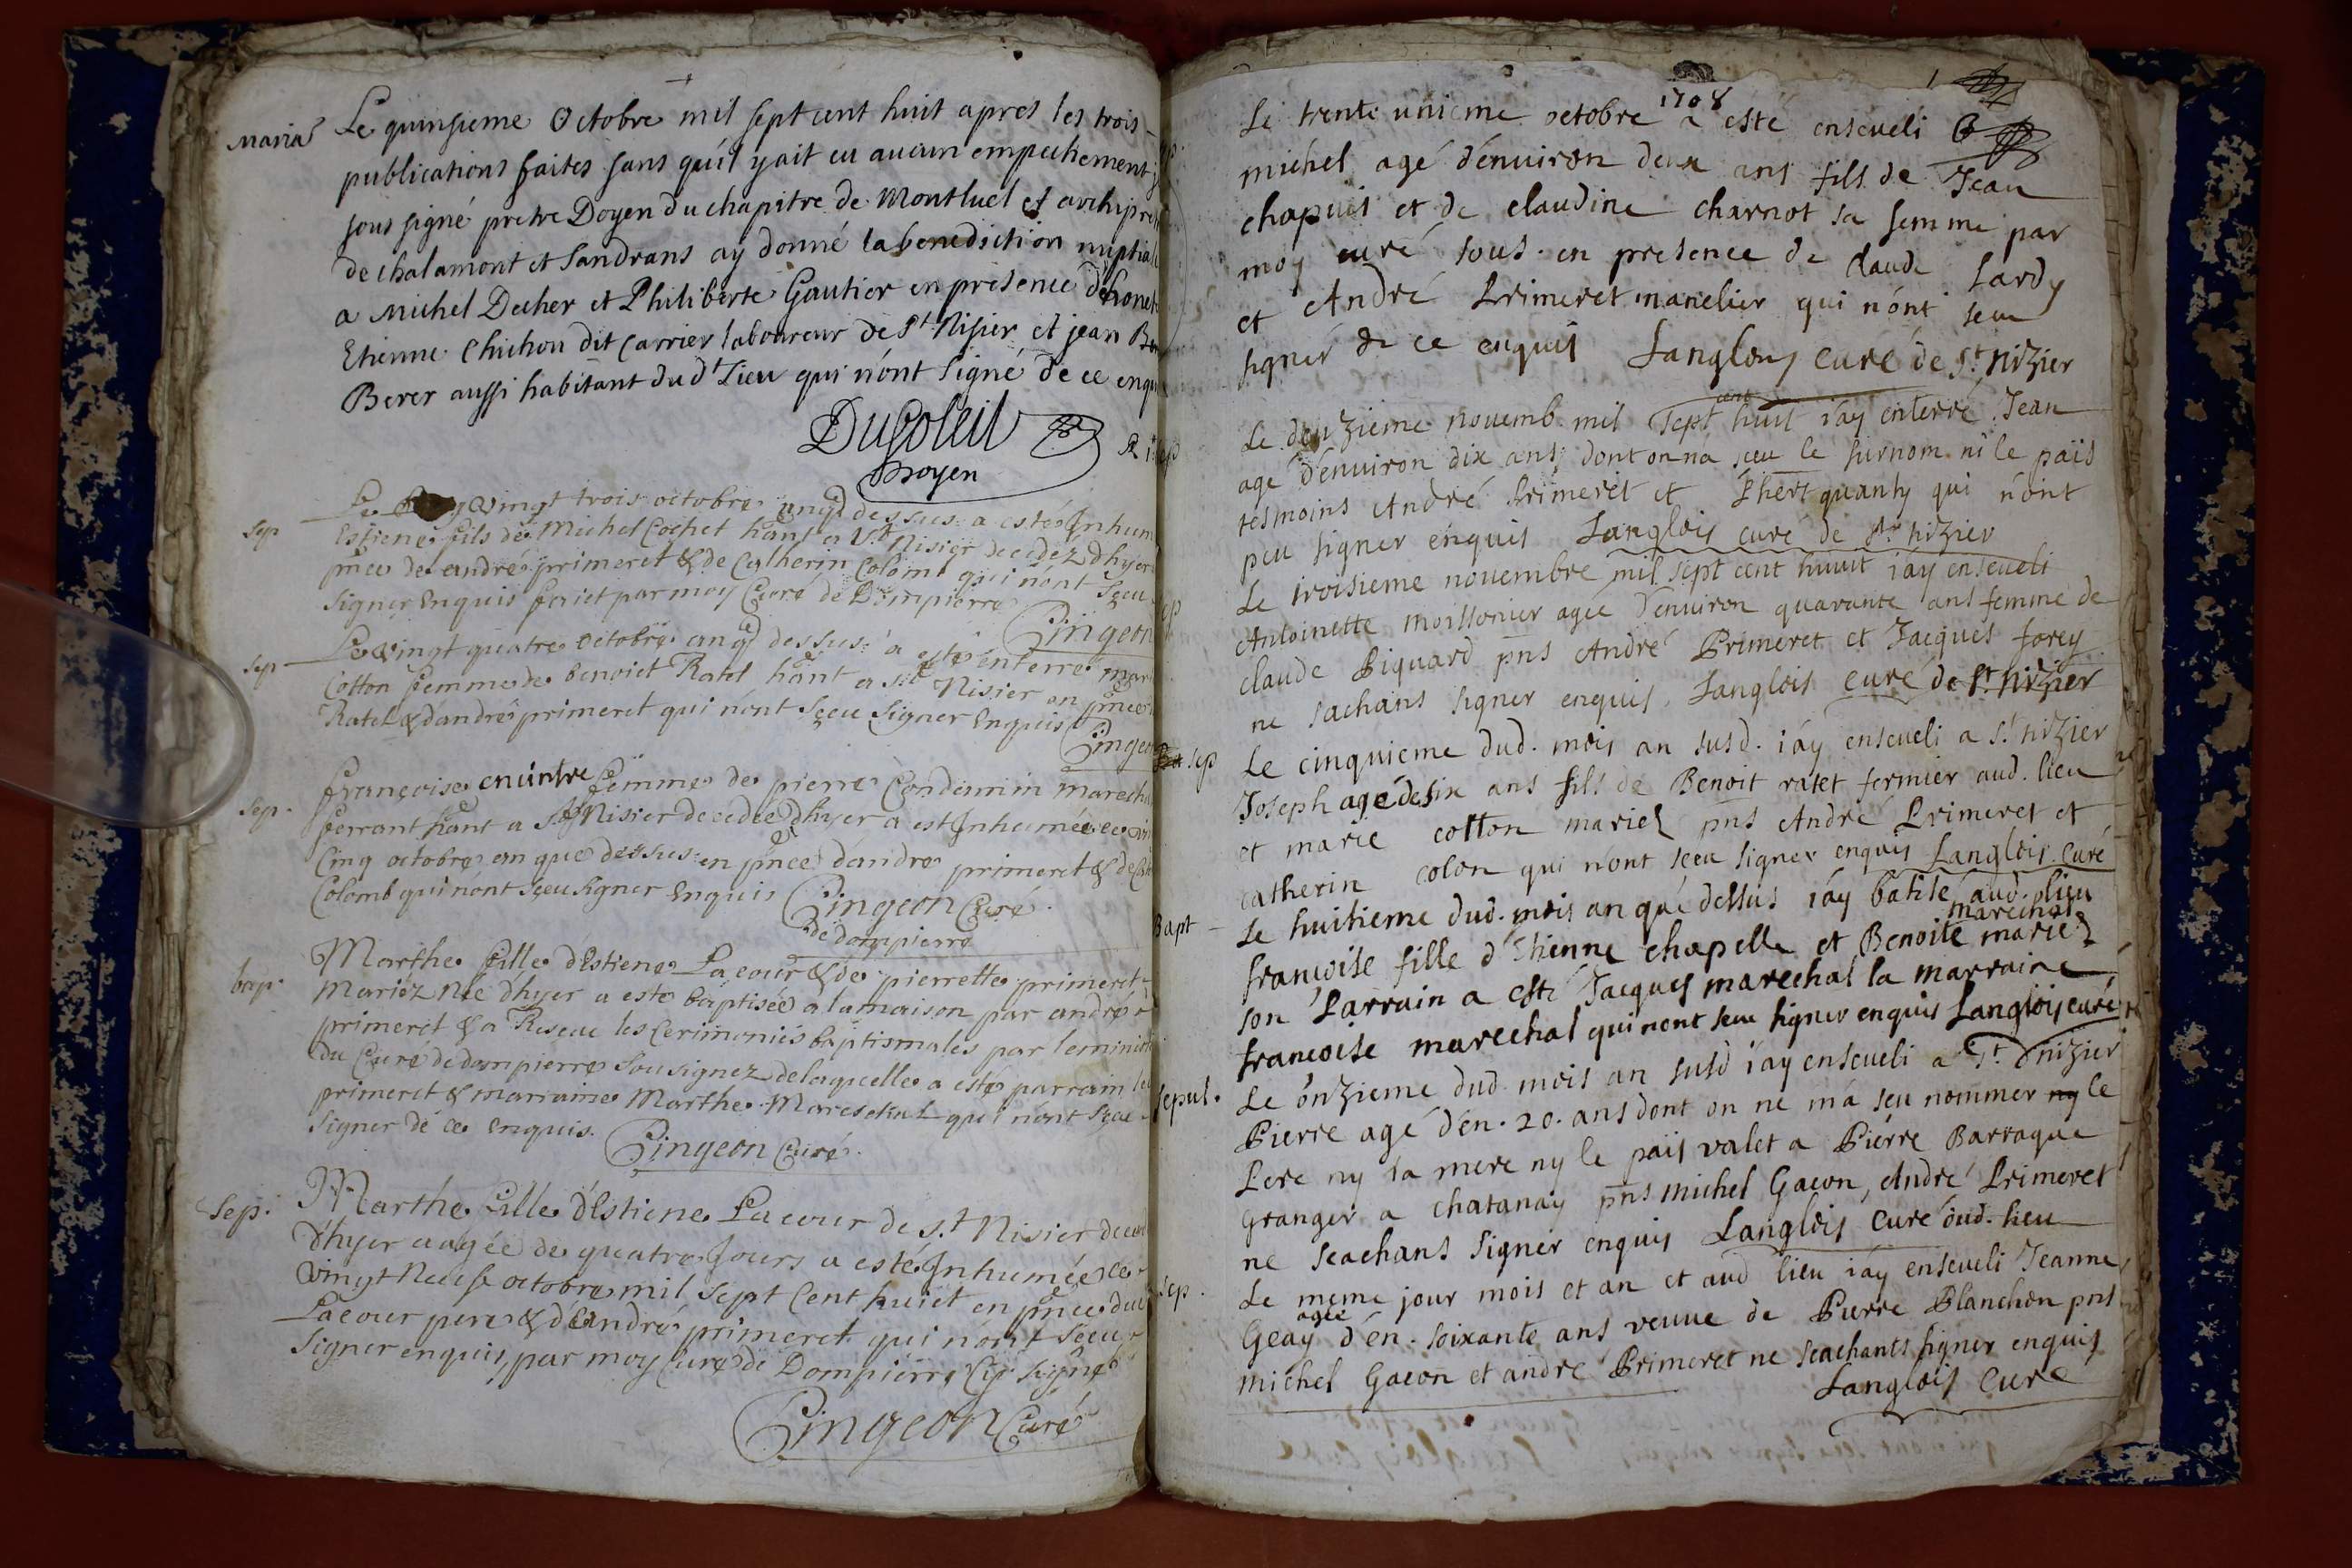 Maria
Le quinsieme Octobre mil sept cent huit apres les trois
publications faites sans qu'il y ait eu aucun empechement je
sous signé pretre Doyen du chapitre de Montluel et archipre
de chalamont et Sandrans ay donné la benediction nuptiale
a Michel Decher et Philiberte Gautier en presence d'honet
Etienne Chichon dit Carrier laboureur de St Nisier et jean
Berer aussi habitant dud t Lieu qui n'ont signé de ce enqui
DuSoleil
Doyen
sep
Le vingt trois octobre an q dessus a esté Inhum
Estiene fils de Michel Cochet hant a St Nisier decedez d'hyer
pnce de andré primeret & de Catherin Colomb qui n'ont Sçeu
signer Enquis faict par moy Curé de Dompierre
Pingeon
sep
Le vingt quatre octobre an q dessus a esté enterré mar
Cotton femme de benoict Ratel hant a St Nisier en pnce
Ratel & d'andré primeret qui n'ont Sçeu Signer Enquis
Pingeon
sep.
françoise femme de pierre Condemin marecha
ferrant hant a St Nisier decedée d'hyer a est Inhumée ce vin
Cinq octobre an que dessus en pnce d'andre primeret & de Cat
Colomb qui n'ont Sçeu signer Enquis Pingeon Curé
de dompierre
bap.
Marthe fille d'Estiene Lacour & de pierrette primeret
Mariez Née d'hyer a este baptisée a la maison par andré
primeret & a Reseue les Cerimoniés baptismales par le minist
du Curé de dompierre Sousignez de laquelle a esté parrain led
primeret & marraine Marthe Mareschal qui n'ont Sçeu
Signer de ce Enquis. Pingeon Curé.
Sep.
Marthe fille d'Estiene Lacour de St Nisier deced
d'hyer aagée de quatre Jours a esté Inhumée ce
vingt Neuf octobre mil Sept Cent huict en pnce dud
Lacour pere & d'andré primeret qui n'ont Sçeu
Signer enquis par moy Curé de Dompierre Cy Signé
Pingeon Curé
1
1708
Le trente unieme octobre a esté enseveli
michel agé d'environ deux ans fils de Jean
chapuis et de claudine charnot sa femme par
moy curé sous. en presence de claude Lardy
et André Primeret manelier qui n'ont seu
signer de ce enquis Langlois curé de St nizier
Le deuzieme novemb. mil sept cent huit i'ay enterré Jean
agé d'environ dix ans dont on na sceu le surnom ni le païs
tesmoins André Primeret et qui n'ont
peu signer enquis Langlois curé de St nizier
Le troisieme novembre mil sept cent huuit i'ay enseveli
Antoinette moissonier agée d'environ quarante ans femme de
claude Piquard pns André Primeret et Jacques forey
ne sachans signer enquis, Langlois curé de St Nizier
sep
Le cinquieme dud. mois an susd. i'ay enseveli a St nizier
Joseph agé de six ans fils de Benoit ratet fermier aud. lieu
et marie cotton mariez pns André Primeret et
catherin colon qui n'ont sceu signer enquis Langlois curé
Bapt
Le huitieme dud. mois an qué dessus i'ay batisé aud. lieu
marechal
françoise fille d'Ethienne chapelle et Benoite mariez
son Parrain a esté Jacques marechal la marraine
françoise marechal qui nont seu signer enquis Langlois curé
sepul.
Le onzieme dud mois an susd i'ay enseveli a St nizier
Pierre agé d'en. 20. ans dont on ne m'a seu nommer ny le
Pere ny la mere ny le païs valet a Pierre Barraque
Granger a chatanay pns Michel Gacon, André Primeret
ne sceachans signer enquis Langlois Curé oud. lieu
sep.
Le meme jour mois et an et aud lieu i'ay enseveli Jeanne
Geay agée d'en. soixante ans veuve de Pierre Blanchon pns
Michel Gacon et andré Primeret ne sceachants signer enquis
Langlois Curé